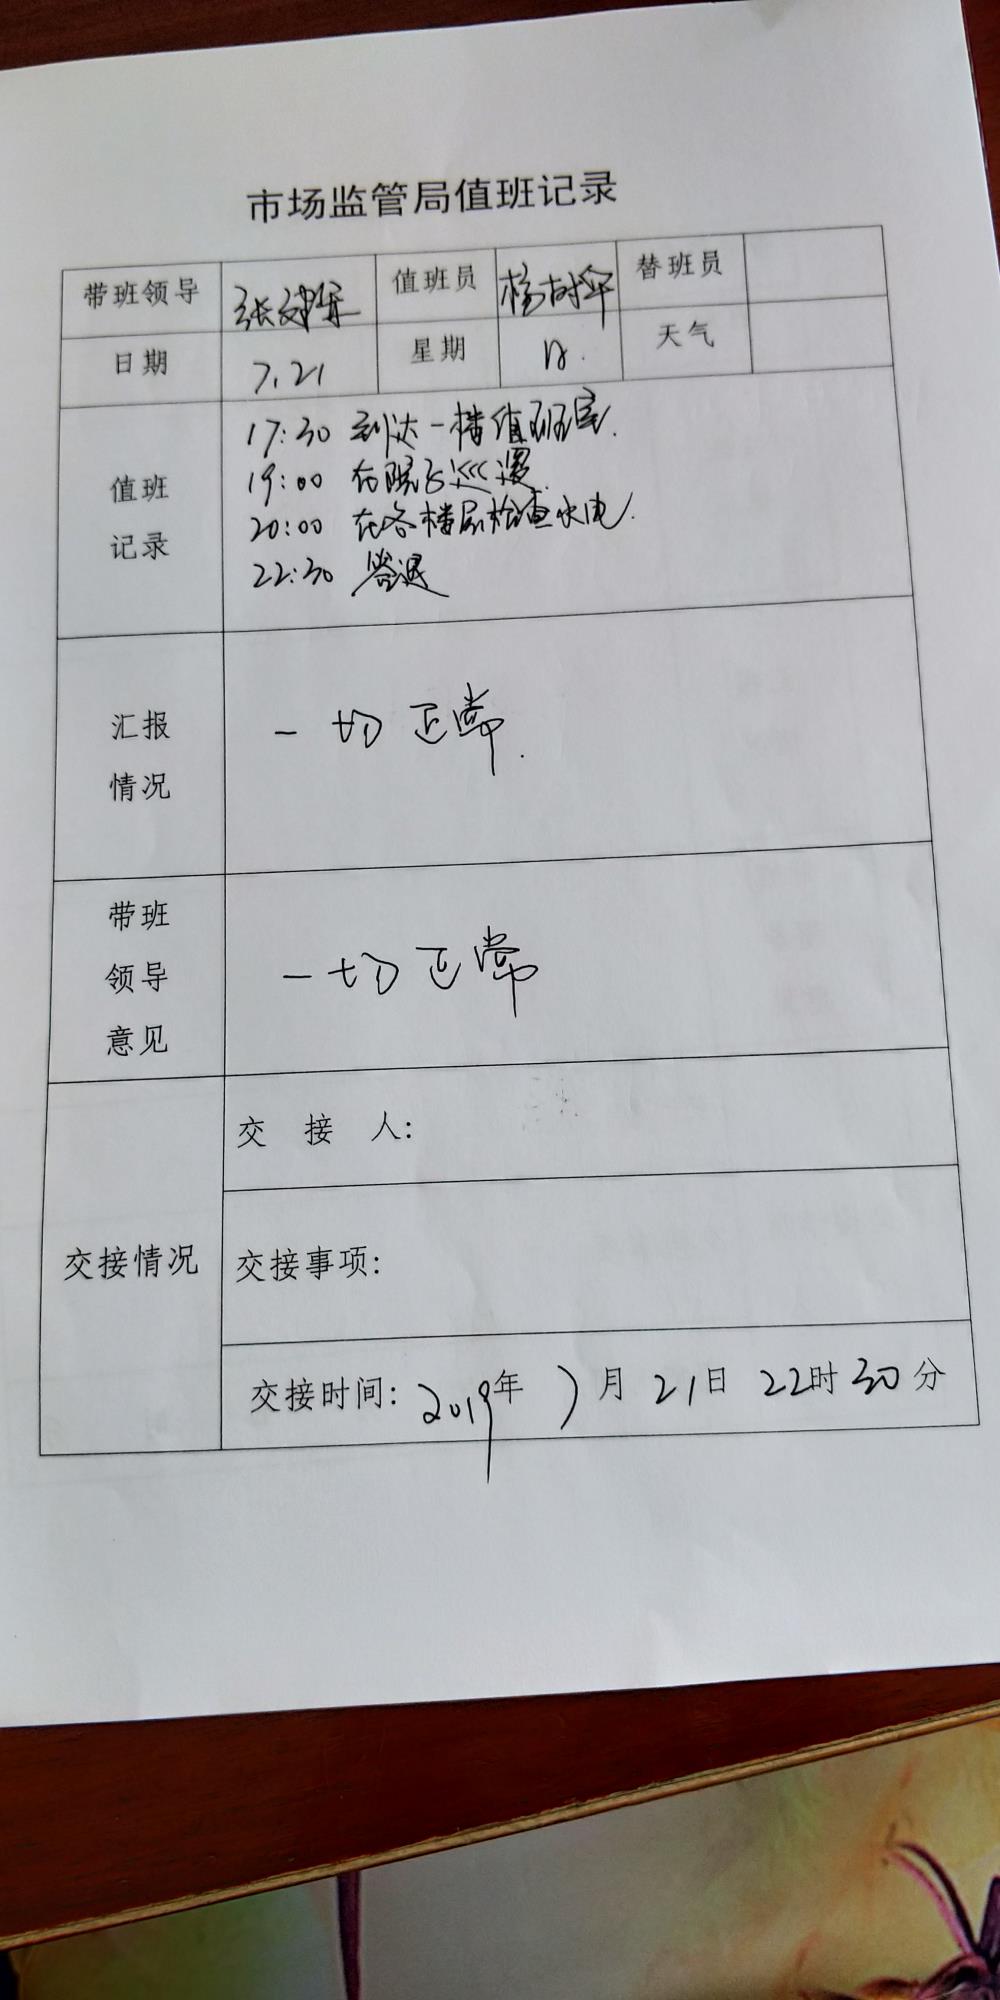 市场监管局值班记录
带班领导 张建军 值班员 替班员
日期 7.21 星期 日. 天气
值班
记录
17:30 到达一楼值班室.
19:00 在院子巡逻.
20:00 在各楼层检查水电.
22:30 签退
汇报
情况
一切正常.
带班
领导
意见
一切正常
交接情况
交 接 人:
交接事项:
交接时间: 2019年 7月 21日 22时 30分